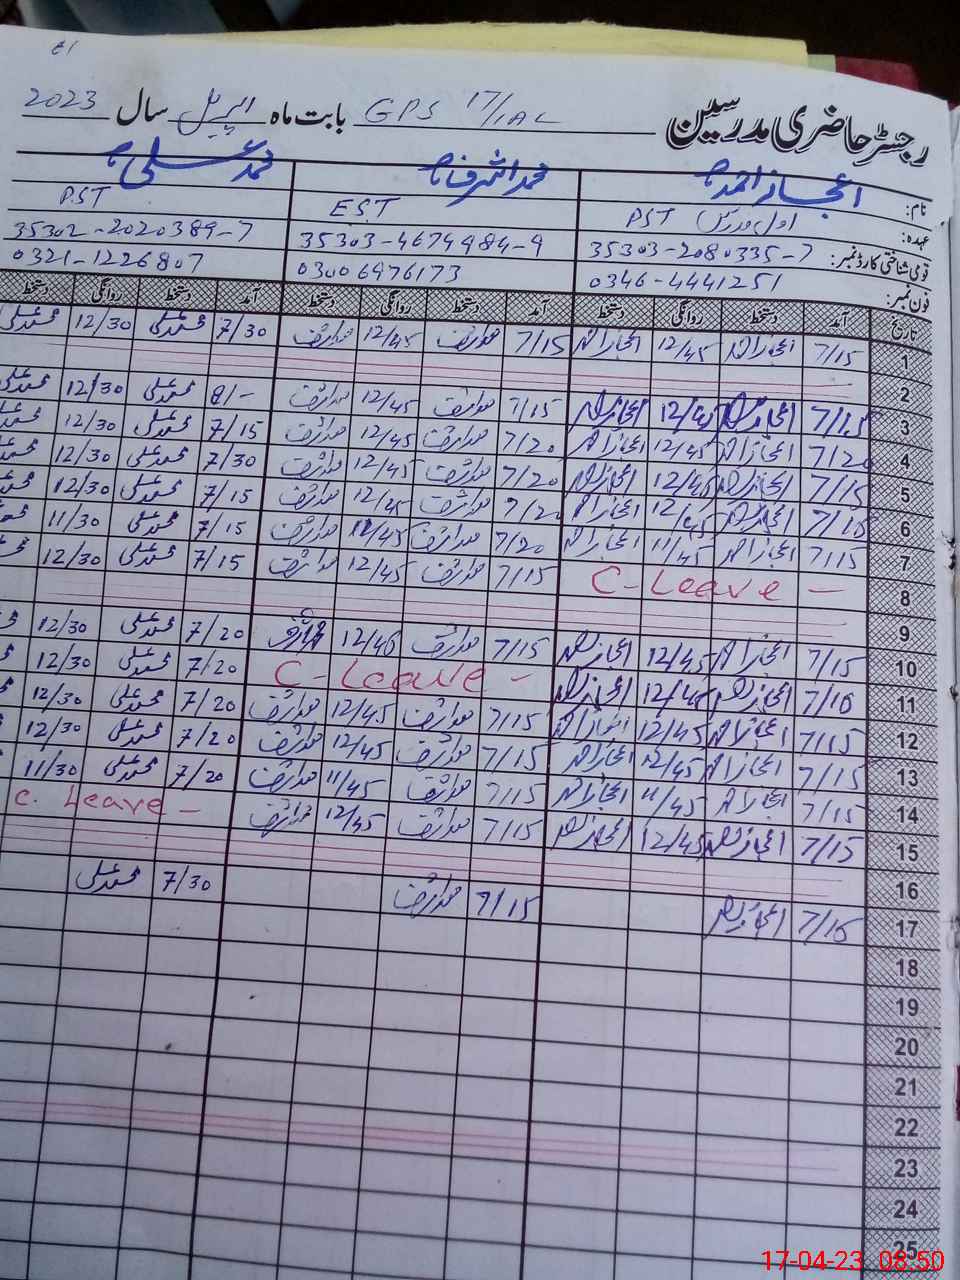 رجسٹر حاضری مدرسین GPS 17/1AL بابت ماہ اپریل سال 2023
نام: اعجاز احمد محمد اشرف محمد علی
عہدہ: اول مدرس PST EST PST
قومی شناختی کارڈ نمبر: 35303-2080335-7 35303-4674984-9 35302-2020389-7
فون نمبر: 0346-4441251 03006976173 0321-1226807
تاریخ آمد دستخط روانگی دستخط آمد دستخط روانگی دستخط آمد دستخط روانگی دستخط
1 7/15 اعجاز احمد 12/45 اعجاز احمد 7/15 محمد اشرف 12/45 محمد اشرف 7/30 محمد علی 12/30 محمد علی
2
3 7/15 اعجاز احمد 12/45 اعجاز احمد 7/15 محمد اشرف 12/45 محمد اشرف 8/- محمد علی 12/30 محمد علی
4 7/20 اعجاز احمد 12/45 اعجاز احمد 7/20 محمد اشرف 12/45 محمد اشرف 7/15 محمد علی 12/30 محمد علی
5 7/15 اعجاز احمد 12/45 اعجاز احمد 7/20 محمد اشرف 12/45 محمد اشرف 7/30 محمد علی 12/30 محمد علی
6 7/15 اعجاز احمد 12/45 اعجاز احمد 7/20 محمد اشرف 12/45 محمد اشرف 7/15 محمد علی 12/30 محمد علی
7 7/15 اعجاز احمد 11/45 اعجاز احمد 7/20 محمد اشرف 11/45 محمد اشرف 7/15 محمد علی 11/30
8 C-Leave - 7/15 محمد اشرف 12/45 محمد اشرف 7/15 محمد علی 12/30
9
10 7/15 اعجاز احمد 12/45 اعجاز احمد 7/15 محمد اشرف 12/45 محمد اشرف 7/20 محمد علی 12/30
11 7/16 اعجاز احمد 12/45 اعجاز احمد C-Leave - 7/20 محمد علی 12/30
12 7/15 اعجاز احمد 12/45 اعجاز احمد 7/15 محمد اشرف 12/45 محمد اشرف 7/20 محمد علی 12/30
13 7/15 اعجاز احمد 12/45 اعجاز احمد 7/15 محمد اشرف 12/45 محمد اشرف 7/20 محمد علی 12/30
14 7/15 اعجاز احمد 11/45 اعجاز احمد 7/15 محمد اشرف 11/45 محمد اشرف 7/20 محمد علی 11/30
15 7/15 اعجاز احمد 12/45 اعجاز احمد 7/15 محمد اشرف 12/45 محمد اشرف C. Leave -
16
17 7/15 اعجاز احمد 7/15 محمد اشرف 7/30 محمد علی
18
19
20
21
22
23
24
25
17-04-23 08:50